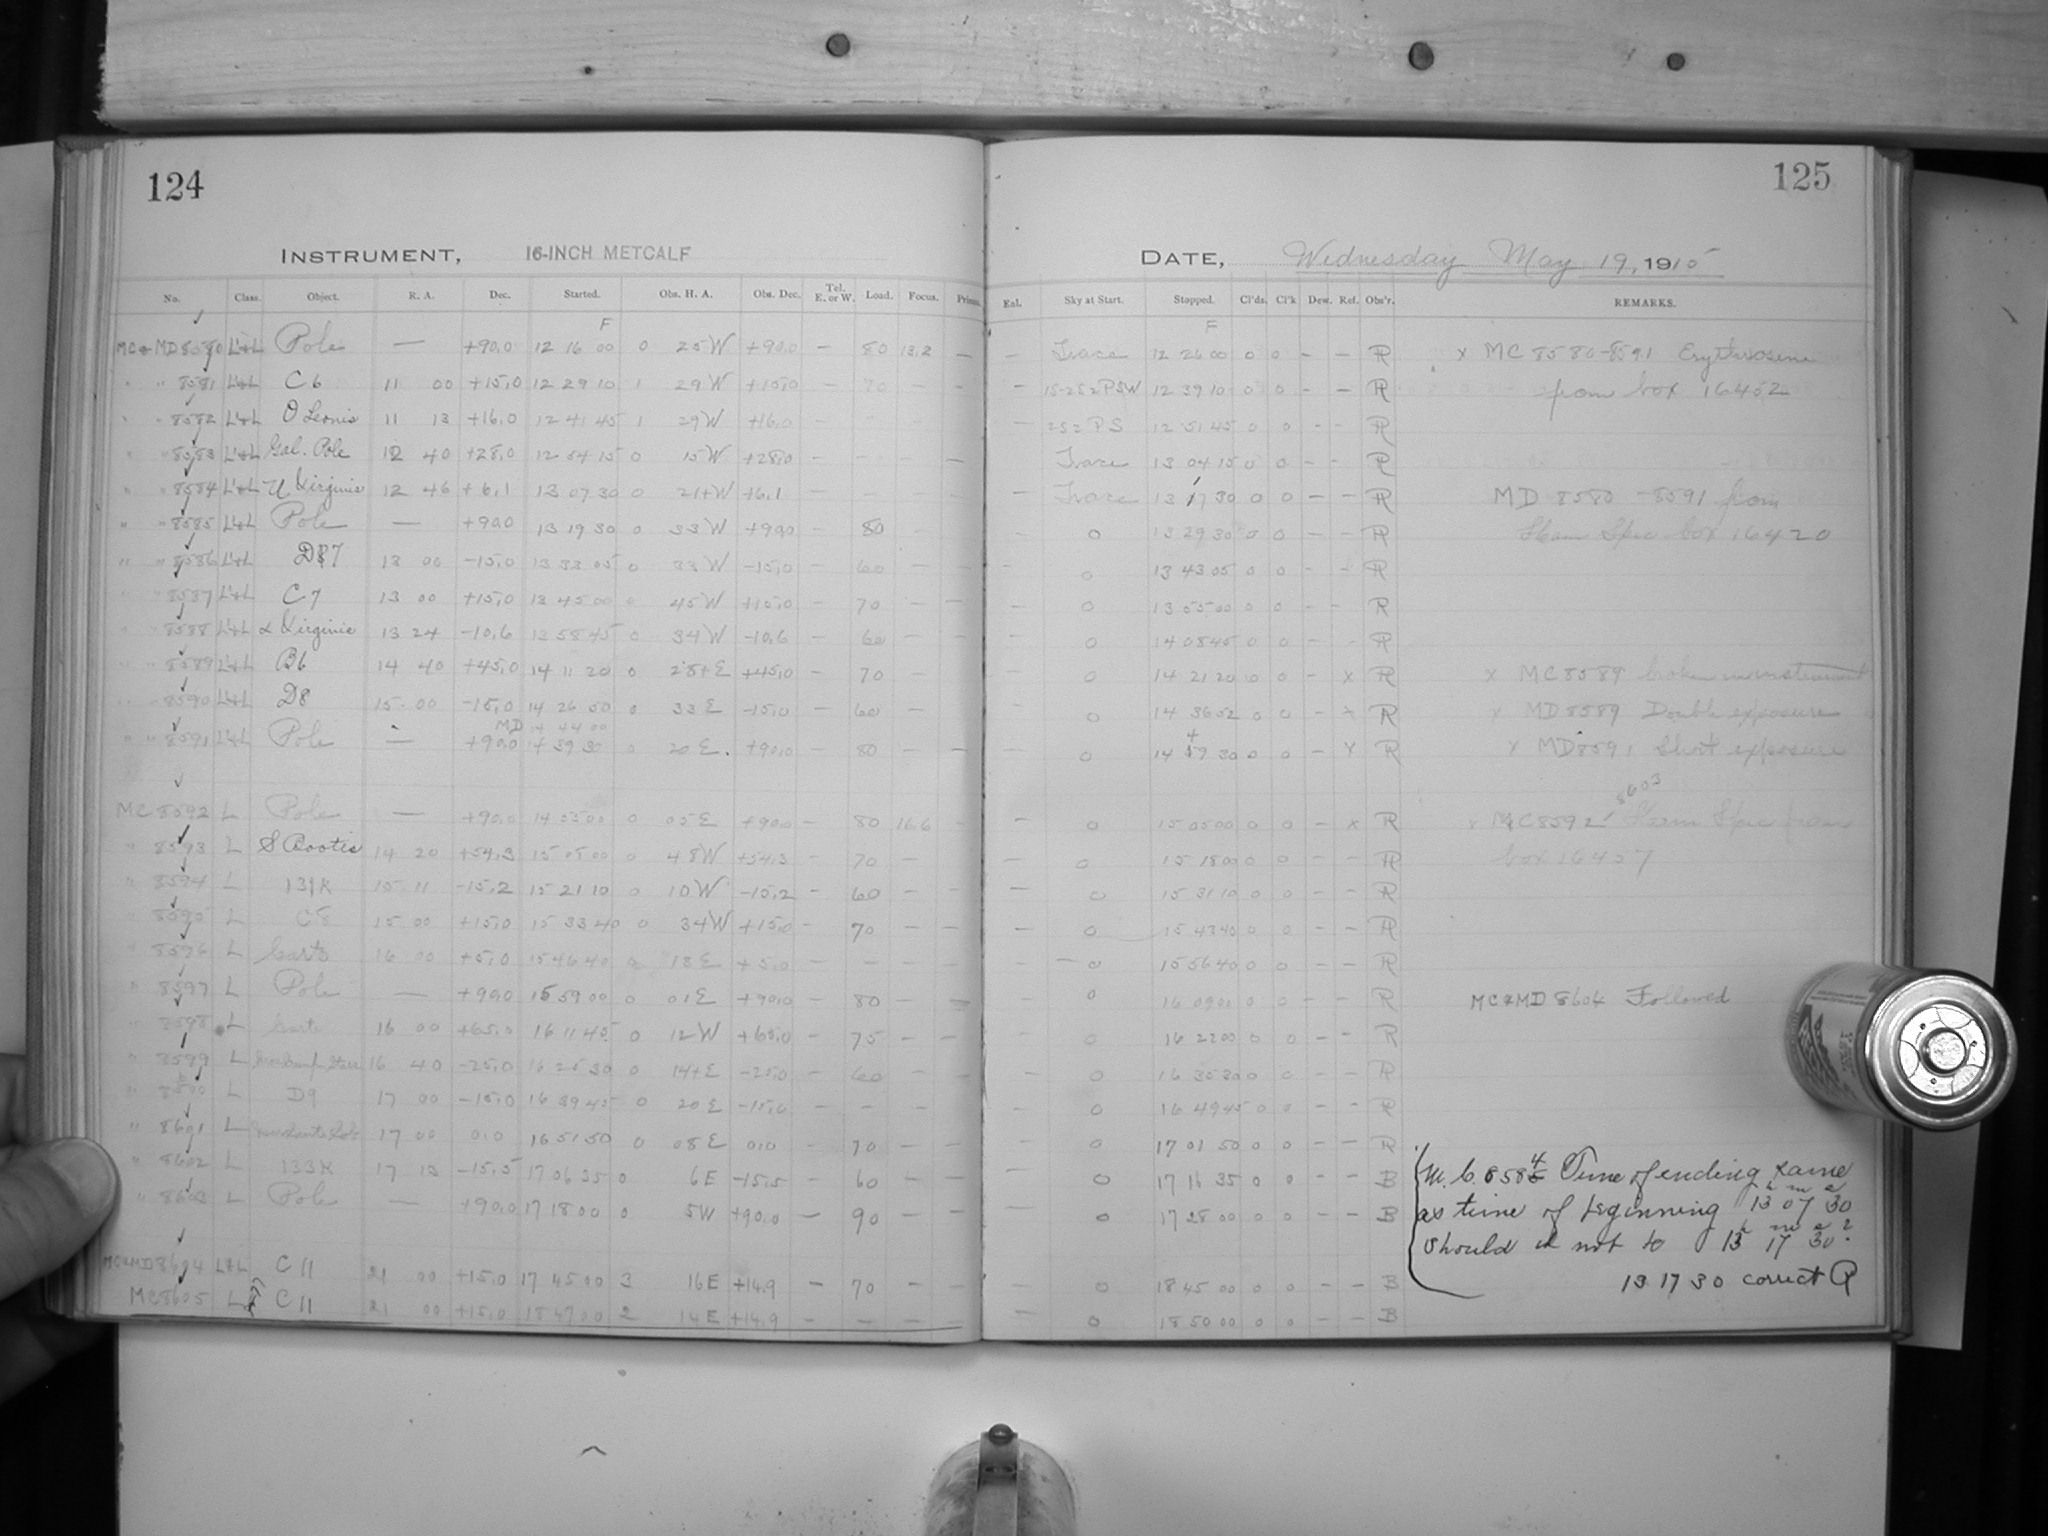 124
125
INSTRUMENT, 16-INCH METCALF
DATE, Wednesday May 19, 1915
No. Class. Object. R. A. Dec. Started. Obs. H. A. Obs. Dec. Tel. E. or W. Load. Focus. Prisms.
Eal. Sky at Start. Stopped. Cl'ds. Cl'k Dew. Ref. Obs'r. REMARKS.
F F
MC & MD 8580 L'+L Pole — +90,0 12 16 00 0 25 W +90,0 — 80 13.2 — — Trace 12 26 00 0 0 — — R x MC 8580-8591 Erythrosine
" " 8581 L'+L C6 11 00 +15,0 12 29 10 1 29 W +15,0 — 70 — — 12 39 10 0 0 — — R from box 16452
" " 8582 L'+L Leonis 11 13 +16,0 12 41 45 1 29 W +16,0 — — — — 12 51 45 0 0 — — R
" " 8583 L'+L Gal. Pole 12 40 +28,0 12 54 15 0 15 W +28,0 — — — — Trace 13 04 15 0 0 — — R
" " 8584 L'+L U Virginis 12 46 +6,1 13 07 30 0 21+W +6,1 — — — — Trace 13 17 30 0 0 — — R MD 8580 - 8591 from
" " 8585 L'+L Pole — +90,0 13 19 30 0 33 W +90,0 — 80 — — 0 13 29 30 0 0 — — R Spec box 16420
" " 8586 L'+L D87 13 00 -15,0 13 33 05 0 33 W -15,0 — 60 — — — 0 13 43 05 0 0 — — R
" " 8587 L'+L C7 13 00 +15,0 13 45 00 0 45 W +15,0 — 70 — — — 0 13 55 00 0 0 — — R
" " 8588 L'+L α Virginis 13 24 -10,6 13 58 45 0 34 W -10,6 — 60 — — — 0 14 08 45 0 0 — — R
" " 8589 L'+L B6 14 40 +45,0 14 11 20 0 28+E +45,0 — 70 — — — 0 14 21 20 0 0 — x R x MC 8589 broken in instrument
" " 8590 L'+L D8 15 00 -15,0 14 26 50 0 33 E -15,0 — 60 — — — 0 14 36 52 0 0 — x R x MD 8589 Double exposure
MD 14 44 00
" " 8591 L'+L Pole — +90,0 14 39 30 0 20 E. +90,0 — 80 — — — 0 14 49 30 0 0 — x R x MD 8591 Short exposure
8603
MC 8592 L Pole — +90,0 14 55 00 0 05 E +90,0 — 80 16.6 — — 0 15 05 00 0 0 — x R x MC 8592 Spec from
" 8593 L S Bootis 14 20 +54,3 15 08 00 0 48 W +54,3 — 70 — — — 0 15 18 00 0 0 — — R box 16457
" 8594 L 131K 15 11 -15,2 15 21 10 0 10 W -15,2 — 60 — — — 0 15 31 10 0 0 — — R
" 8595 L C8 15 00 +15,0 15 33 40 0 34 W +15,0 — 70 — — — 0 15 43 40 0 0 — — R
" 8596 L 16 00 +5,0 15 46 40 0 18 E +5,0 — — — — — 0 15 56 40 0 0 — — R
" 8597 L Pole — +90,0 15 59 00 0 01 E +90,0 — 80 — — 0 16 09 00 0 0 — — R MC & MD 8604 Followed
" 8598 L 16 00 +65,0 16 11 45 0 12 W +65,0 — 75 — — — 0 16 22 00 0 0 — — R
" 8599 L 16 40 -25,0 16 25 30 0 14+E -25,0 — 60 — — — 0 16 35 30 0 0 — — R
" 8600 L D9 17 00 -15,0 16 39 45 0 20 E -15,0 — — — — — 0 16 49 45 0 0 — — R
" 8601 L 17 00 0,0 16 51 50 0 08 E 0,0 — 70 — — — 0 17 01 50 0 0 — — R
" 8602 L 133K 17 13 -15,5 17 06 35 0 6 E -15,5 — 60 — — — 0 17 16 35 0 0 — — B M. C. 8584 Time of ending same
" 8603 L Pole — +90,0 17 18 00 0 5 W +90,0 — 90 — — — 0 17 28 00 0 0 — — B as time of beginning 13h 07m 30s
should it not be 13h 17m 30s?
MC & MD 8604 L'+L C11 21 00 +15,0 17 45 00 3 16 E +14,9 — 70 — — — 0 18 45 00 0 0 — — B 13 17 30 correct R
MC 8605 L C11 21 00 +15,0 18 47 00 2 14 E +14,9 — — — — — 0 18 50 00 0 0 — — B